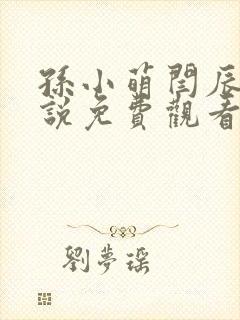 孫小萌閆辰
說免費觀看
劉夢瑶